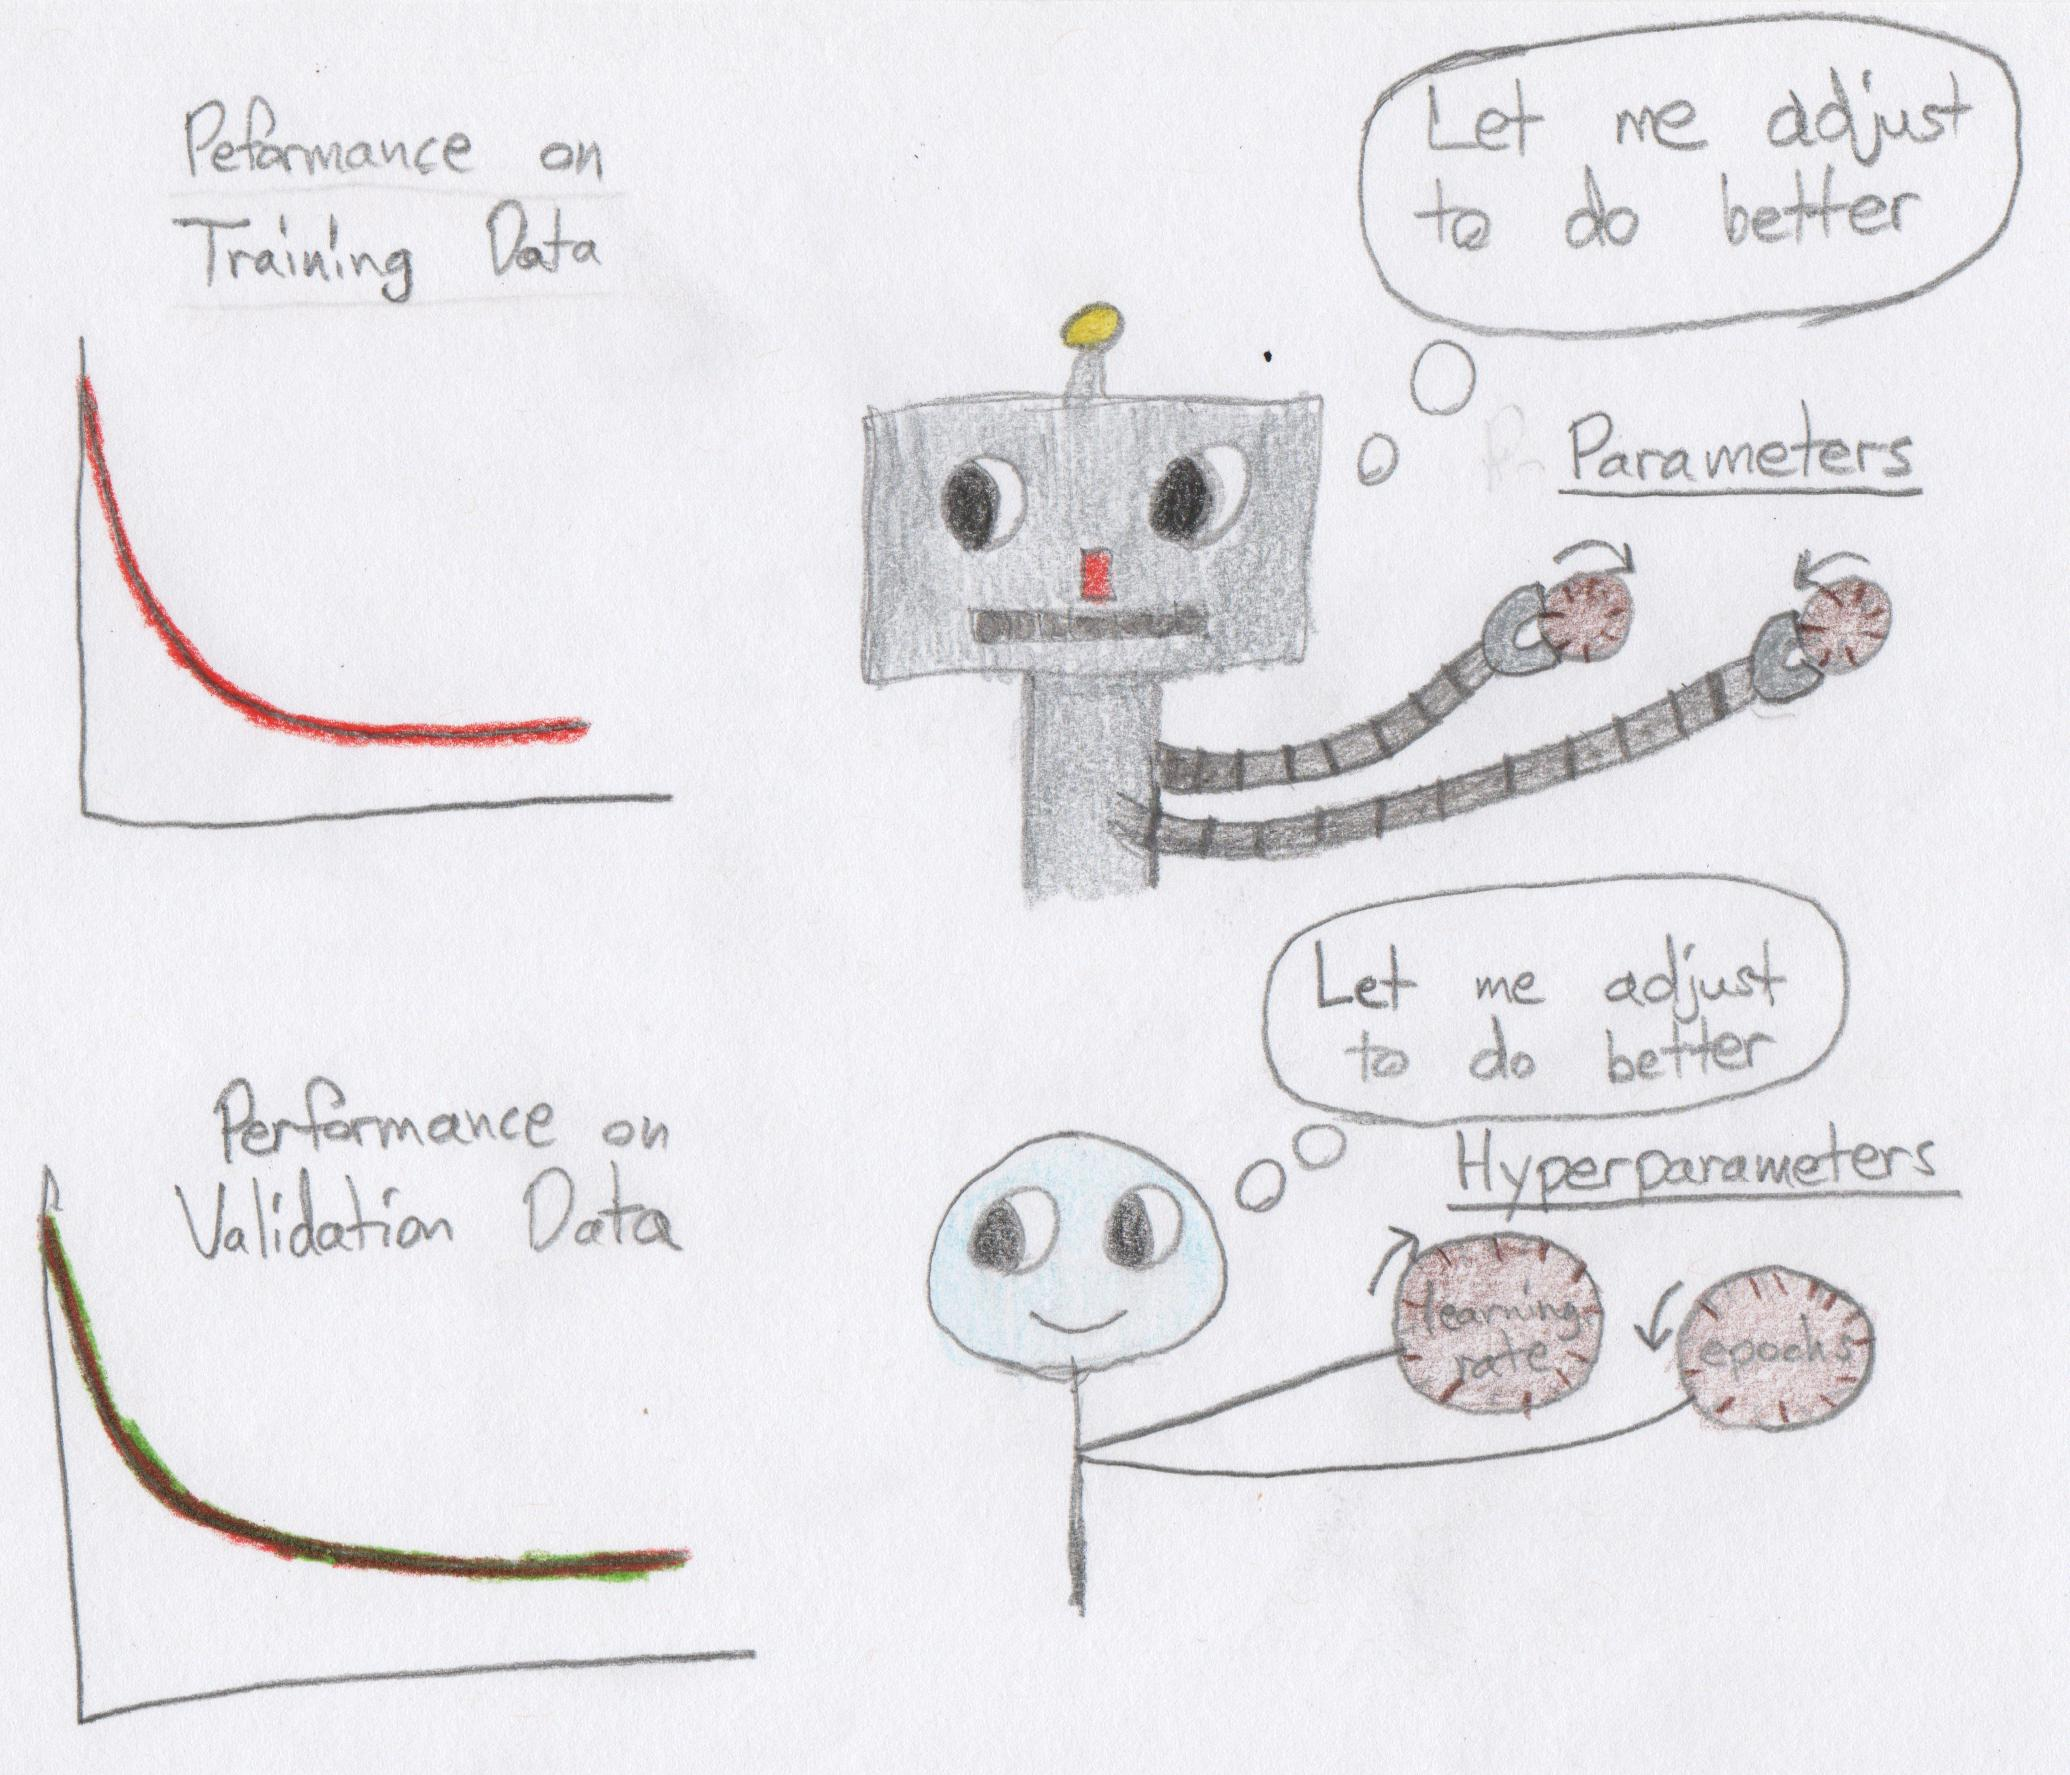 Peformance on
Training Data
Let me adjust
to do better
Parameters
Performance on
Validation Data
Let me adjust
to do better
Hyperparameters
learning
rate
epochs